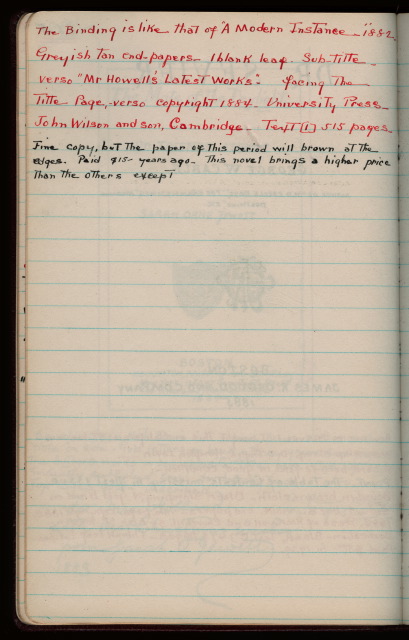 The Binding is like that of "A Modern Instance - "1882.
Greyish tan end-papers - 1 blank leaf. Sub-Title
verso "Mr Howell's Latest Works". facing The
Title Page, verso copyright 1884 - University Press -
John Wilson and Son, Cambridge - Text [1] 515 pages.
Fine copy, but The paper of this period will brown at The
edges. Paid $15- years ago - This novel brings a higher price
Than The others except